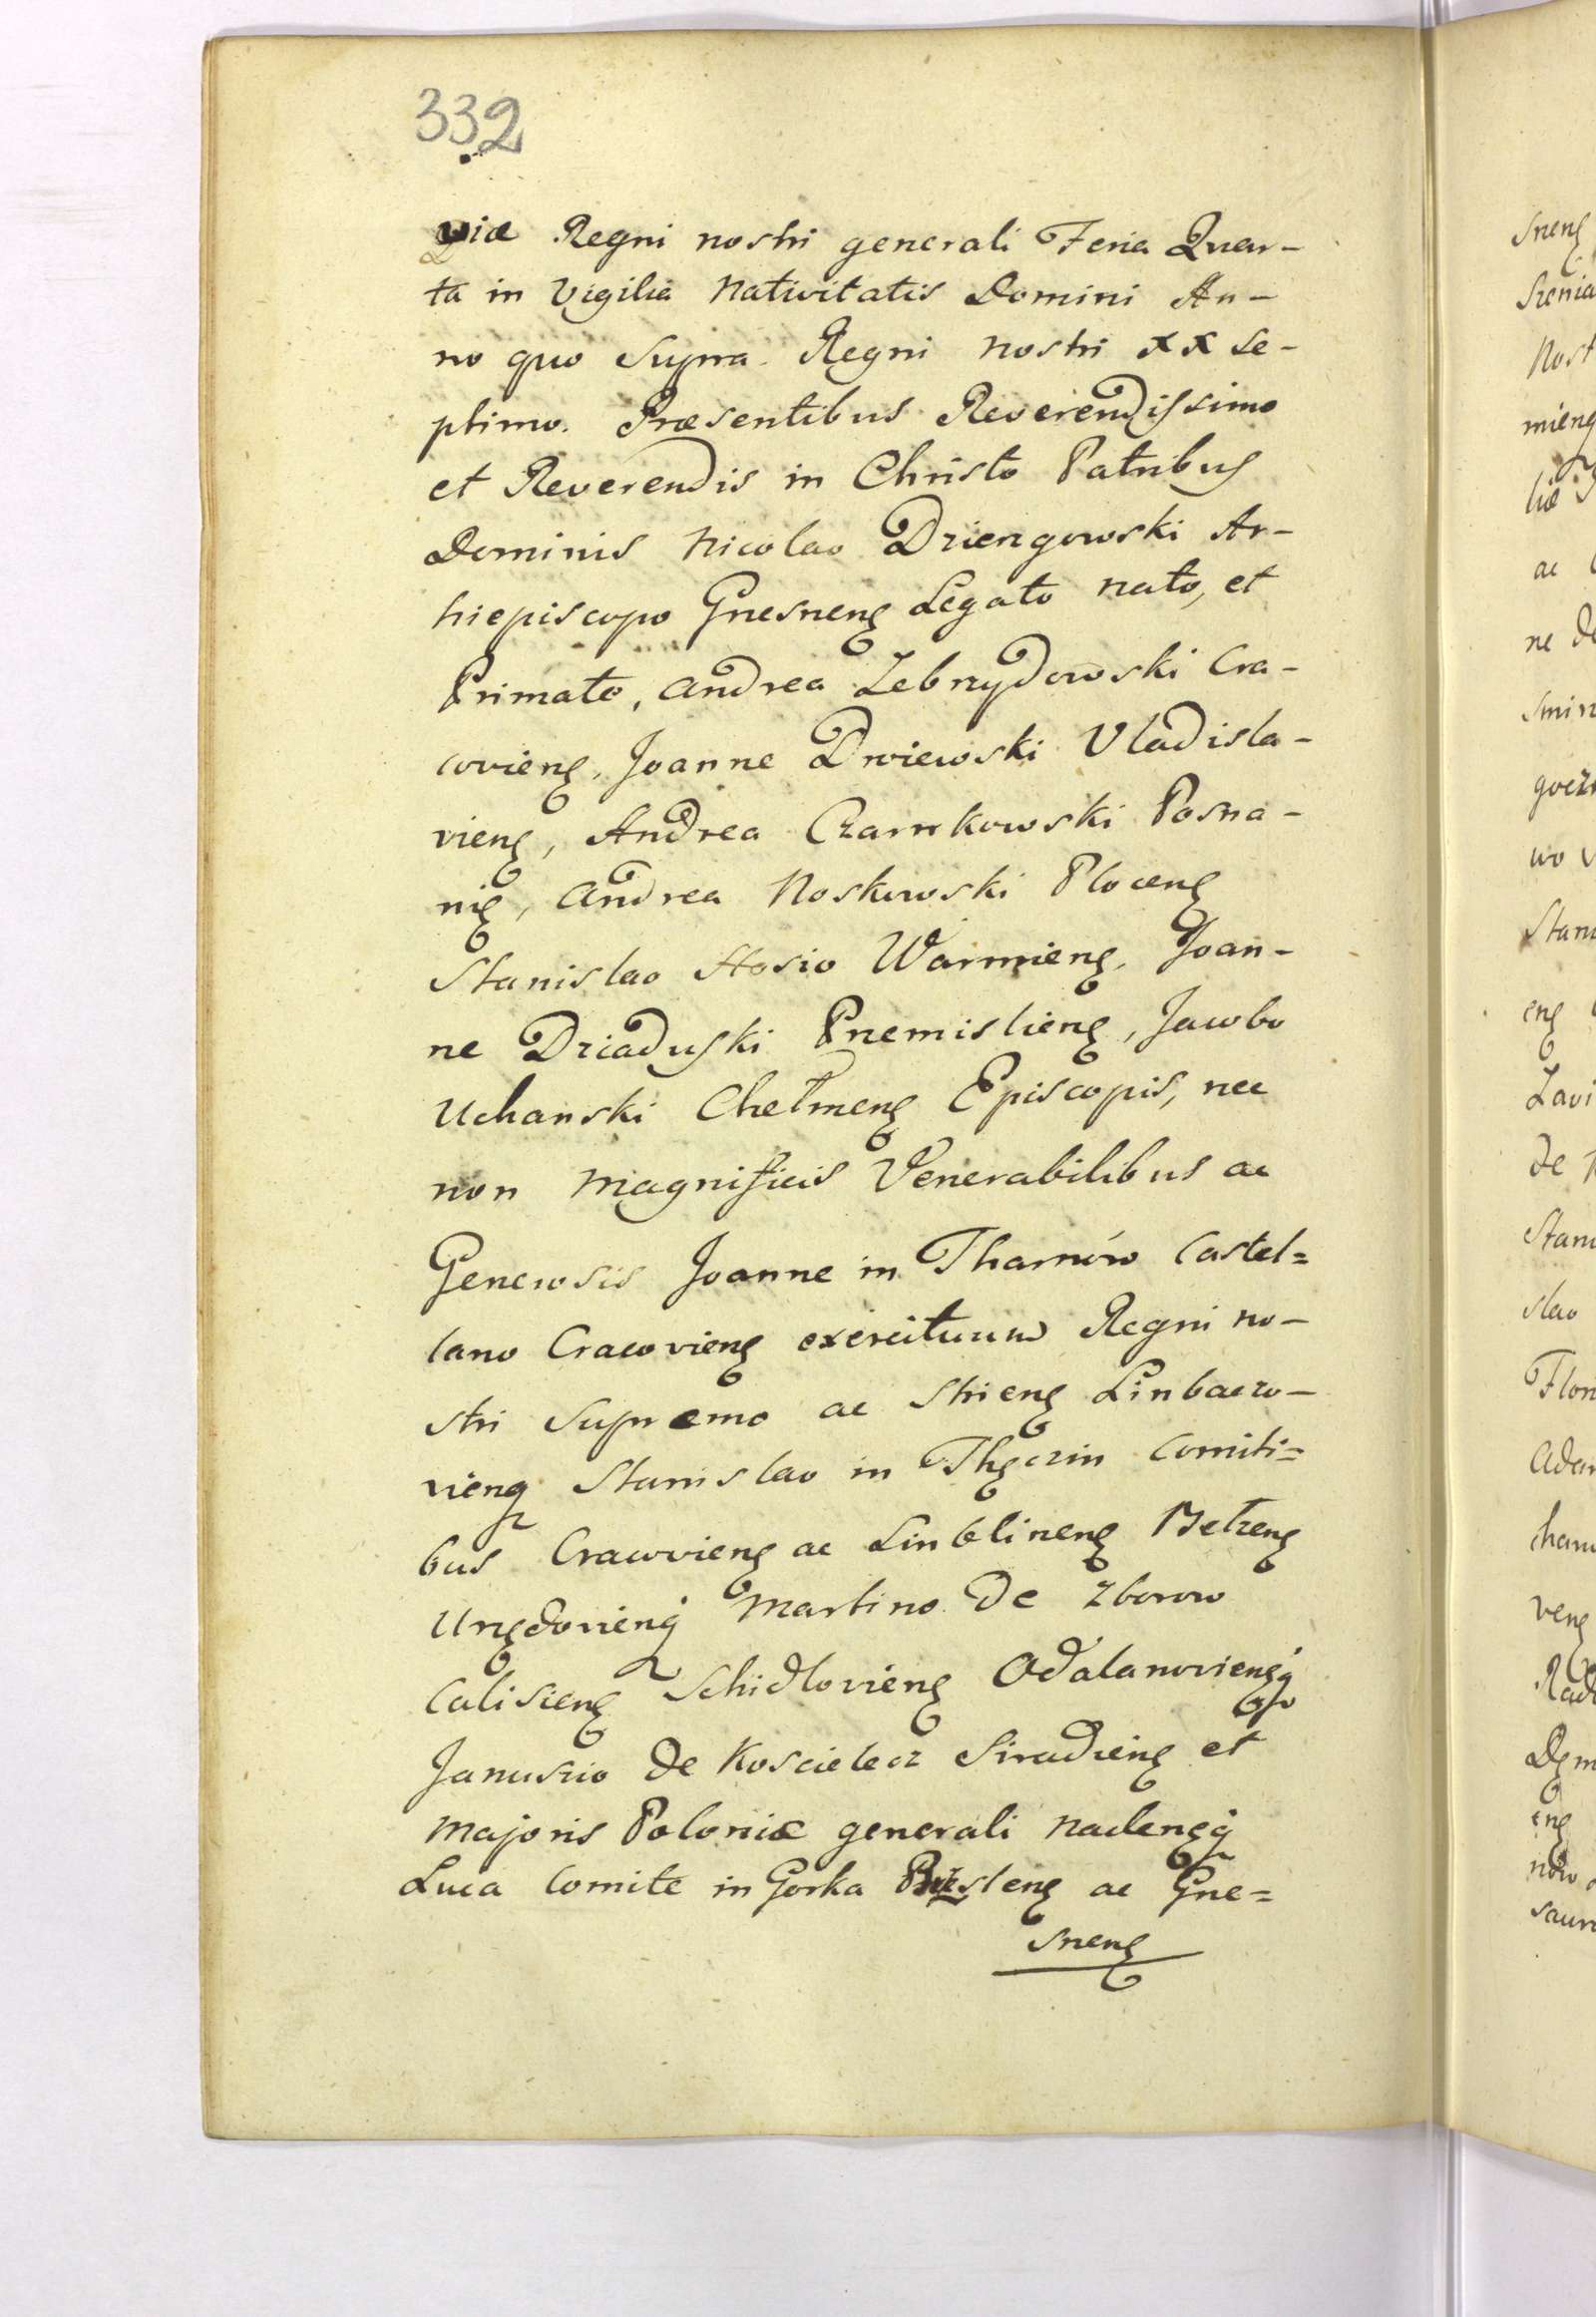 332
viæ Regni nostri generali Feria Quar-
ta in Vigilia Nativitatis Domini An-
no quo Supra Regni nostri XX Se-
ptimo. Præsentibus Reverendissimo
et Reverendis in Christo Patribus
Dominis Nicolao Dziergowski Ar-
hiepiscopo Gnesneng Legato nato, et
Primato, Andrea Zebrzydowski Cra-
covieng, Joanne Drviewski Vladisla-
vieng, Andrea Czarnkowski Posna-
nig, Andrea Noskowski Ploceng
Stanislao Hosio Warmieng, Joan-
ne Dziaduski Premislieng, Jacobo
Uchanski Chelmeng Episcopis, nec
non Magnificis Venerabilibus ac
Generosis Joanne in Tharnów Castel=
lano Cracovieng exercituum Regni no-
stri Supremo ac Strieng Linbaczo-
vienq Stanislao in Thęczin Comiti=
bus Cracovieng ac Linblineng Belzeng
Urzędovienq Martino De Zborow
Calisieng Schidlovieng Odalanoviengq
Januszio De Koscielecz Siradieng et
Majoris Poloniæ generali Naclengq
Luca Comite in Gorka Brzesteng ac Gne=
sneng
sneng
Szenia
Nost
mieng
liæ
ac
ne de
smin
wo v
Stan
eng
Zavi
De
Stani
slao
Flori
Adam
cham
veng
Rad
eng
saur